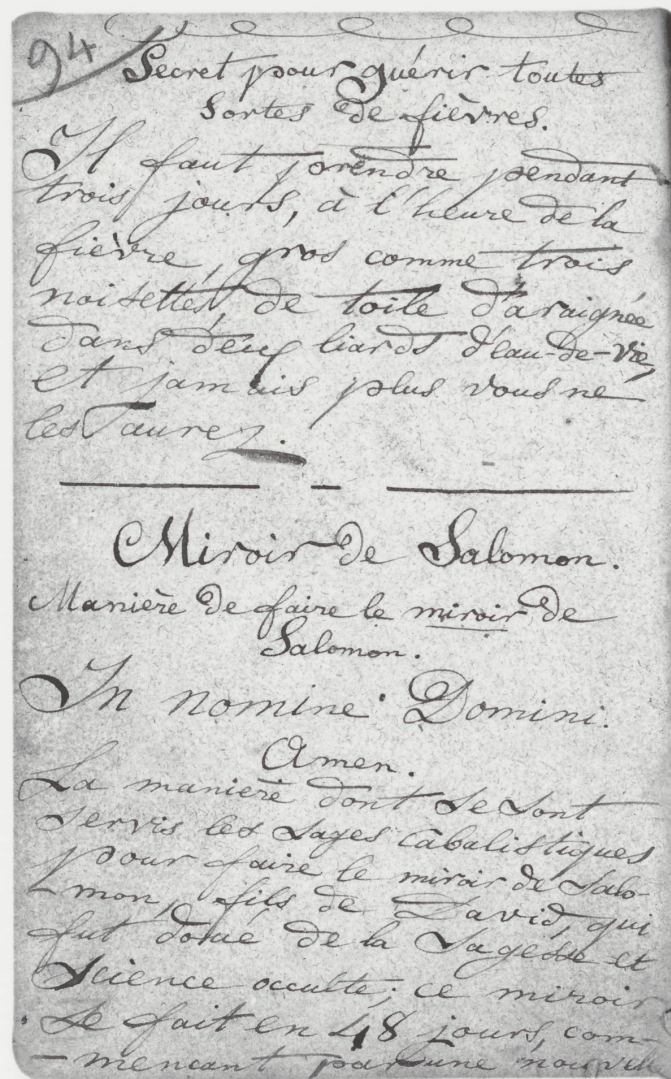 94
Secret pour guérir toutes
sortes de fièvres.
Il faut prendre pendant
trois jours, à l'heure de la
fièvre, gros comme trois
noisettes, de toile d'araignée
dans deux liards d'eau-de-vie,
et jamais plus vous ne
les aurez.
Miroir de Salomon.
Manière de faire le miroir de
Salomon.
In nomine Domini.
Amen.
La manière dont se sont
servis les sages cabalistiques
pour faire le miroir de Salo-
-mon, fils de David, qui
fut doué de la Sagesse et
Science occulte; ce miroir
se fait en 48 jours, com-
-mencant par une nouvelle